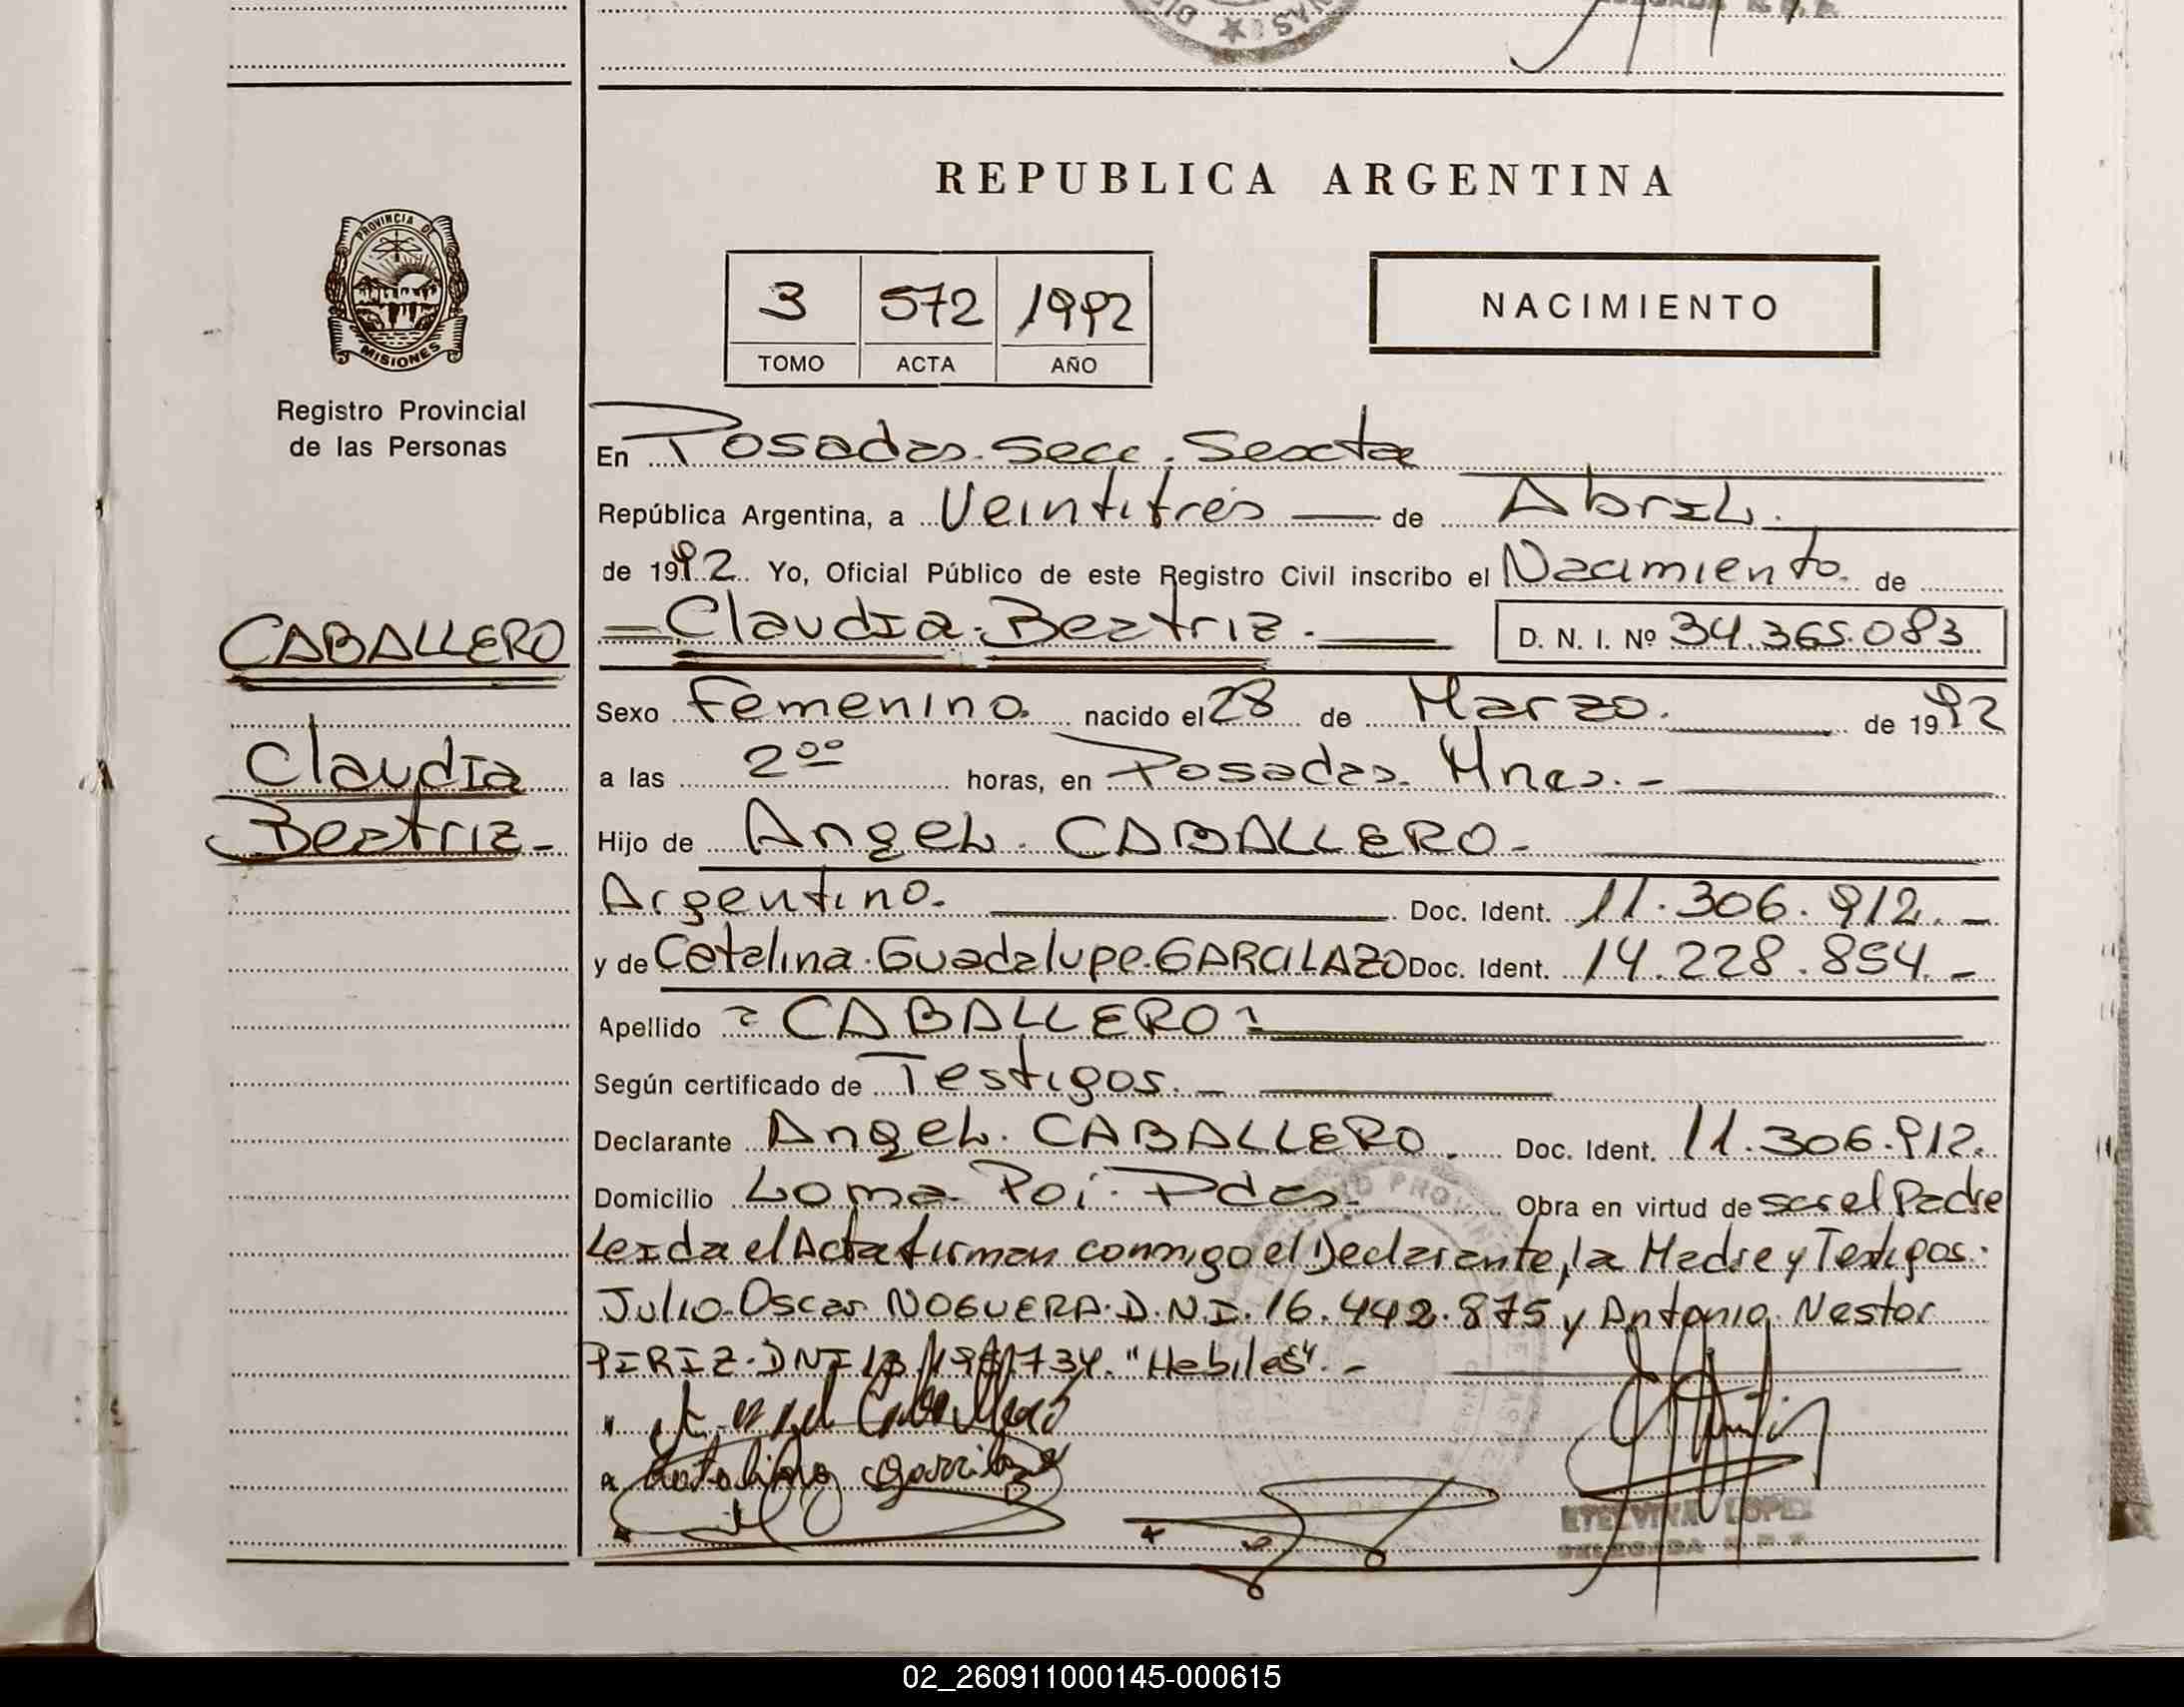 REPUBLICA ARGENTINA
PROVINCIA DE
MISIONES
Registro Provincial
de las Personas
3 572 1992
TOMO ACTA AÑO
NACIMIENTO
En Posadas. Secc. Sexta
República Argentina, a Veintitrés de Abril.
de 1992. Yo, Oficial Público de este Registro Civil inscribo el Nacimiento. de
CABALLERO
Claudia. Beatriz. D. N. I. Nº 34.365.083
Sexo Femenino. nacido el 28 de Marzo. de 1992
Claudia
a las 2⁰⁰ horas, en Posadas. Mnes. -
Beatriz -
Hijo de Angel. CABALLERO -
Argentino. Doc. Ident. 11.306.912. -
y de Catalina. Guadalupe. GARCILAZO Doc. Ident. 14.228.854. -
Apellido = CABALLERO =
Según certificado de Testigos. -
Declarante Angel. CABALLERO. Doc. Ident. 11.306.912.
Domicilio Loma. Poi. Pdas. Obra en virtud de ser el Padre
Leida el Acta firman conmigo el Declarante, la Madre y Testigos:
Julio. Oscar NOGUERA. D.N.I. 16.442.875 y Antonio. Nestor
PIRIZ. DNI "Habiles". -
Angel Caballero
Catalina
ETELVINA LOPEZ
DELEGADA R.P.P.
02_260911000145-000615